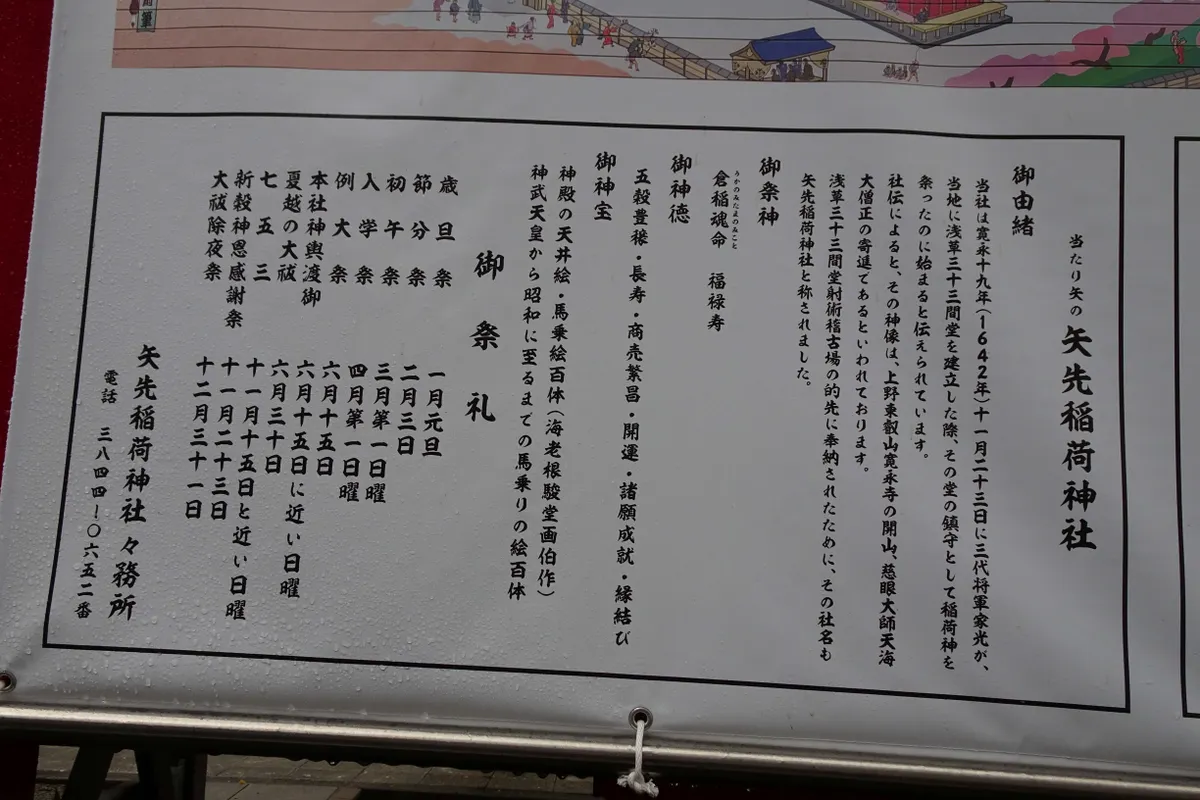 当たり矢の 矢先稲荷神社
御由緒
当社は寛永十九年(1642年)十一月二十三日に三代将軍家光が、
当地に浅草三十三間堂を建立した際、その堂の鎮守として稲荷神を
祭ったのに始まると伝えられています。
社伝によると、その神像は、上野東叡山寛永寺の開山、慈眼大師天海
大僧正の寄進であるといわれております。
浅草三十三間堂射術稽古場の的先に奉納されたために、その社名も
矢先稲荷神社と称されました。
御祭神
うかのみたまのみこと
倉稲魂命 福禄寿
御神徳
五穀豊穣・長寿・商売繁昌・開運・諸願成就・縁結び
御神宝
神殿の天井絵・馬乗絵百体(海老根駿堂画伯作)
神武天皇から昭和に至るまでの馬乗りの絵百体
御祭礼
歳旦祭 一月元旦
節分祭 二月三日
初午祭 三月第一日曜
入学祭 四月第一日曜
例大祭 六月十五日
本社神輿渡御 六月十五日に近い日曜
夏越の大祓 六月三十日
七五三 十一月十五日と近い日曜
新穀神恩感謝祭 十一月二十三日
大祓除夜祭 十二月三十一日
矢先稲荷神社々務所
電話 三八四四ー〇六五二番